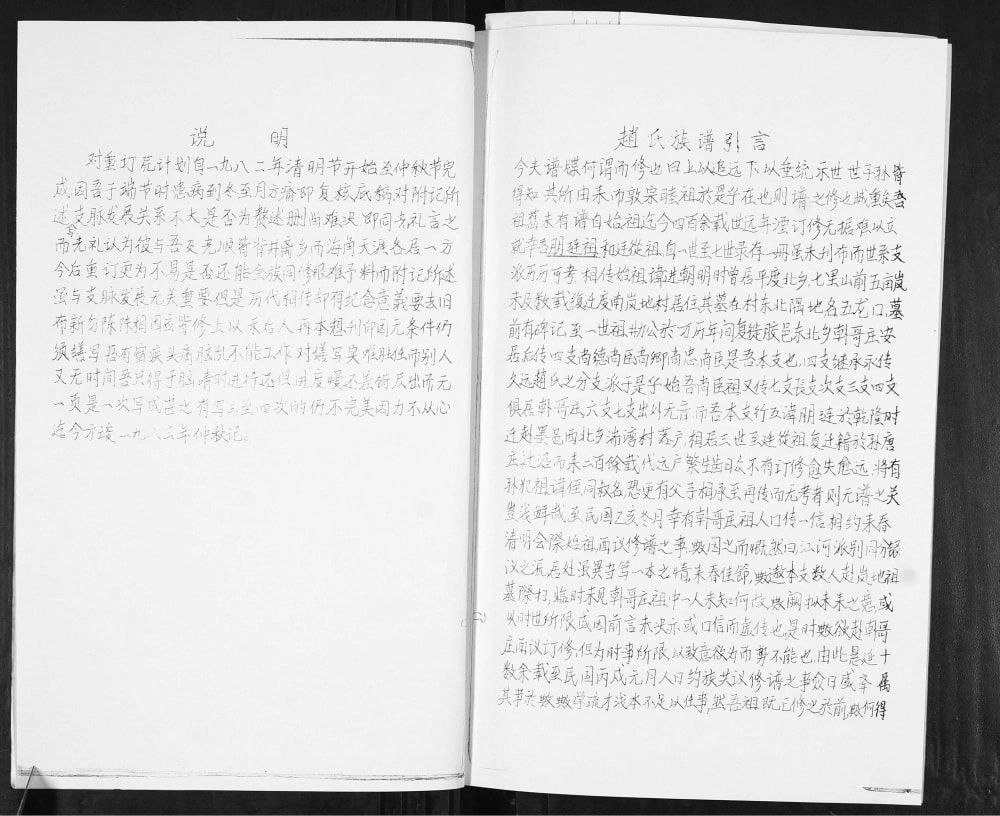 说 明
对重订死计划自一九八二年清明节开始至仲秋节完
成因吾于端节时患病到冬至月方痊即复核底稿对附记所
述支脉发展关系不大是否为赘述删尚难决即同先礼言之
而先礼认为彼与吾及先顺皆背井离乡而海南天涯各居一方
今后重订更为不易是否还能会族同修很难予料而附记所述
虽与支脉发展无关重要但是历代相传却有纪念意义要去旧
布新勿陈陈相因应皆修上以示后人再本想刊印因无条件仍
须缮写吾有病疾头痛脑乱不能工作对缮写实难胜任而别人
又无时间吾只得于脑清时进行还但进度慢还差错反出所无
一页是一次写成甚之有写三至四次的仍不完美因力不从心
迄今方竣一九八三年仲秋记。
趙氏族谱引言
今夫谱牒何谓而修也曰上以追远下以垂统示世世子孙皆
得知其所由来而敦宗睦祖於是乎在也则谱之修也城重矣吾
祖旧未有谱自始祖迄今四百余载世远年湮订修无据难以立
就幸吾朋璉祖和廷從祖自一世至七世录存一册虽未刊布而世系支
派历历可考相传始祖諱进朝明时曾居平度北乡七里山前五亩岚
未及数载復迁度南岚地村居住其墓在村东北隅地名五龙口墓
前有碑记至一世祖 公於万历年间复徙胶邑东北乡韩哥庄安
居后传四支尚德尚医尚卿尚忠尚臣是吾本支也四支继承示传
久远赵氏之分支派于是乎始吾尚臣祖又传七支長支次支三支四支
俱居韩哥庄六支七支出外无音而吾本支行五諱朋璉於乾隆时
迁赴墨邑西北乡湍湾村落户相居三世至连從祖复迁籍於孙唐
庄 沿而来二百余载代远户繁生齿日众不有订修愈失愈远将有
孙犯祖諱侄同叔名恐更有父子相承至再传而无考者则无谱之关
岂浅鲜哉至民国乙亥冬月幸有韩哥庄祖人口传一信相约来春
清明会祭始祖面议修谱之事 因之而慨然曰江河派别同分
议之流居处虽異当笃一本之情来春佳節 邀本支数人赴岚地祖
墓際扫临时未见韩哥庄祖中一人未知何故 阙拟未来之意或
以时世所限或因前言未央亦或口信而虚传也是时 欲赴韩哥
庄商议订修但为时事所限以致意欲为而势不能也由此悬延十
数余载至民国丙戌元月人日约族共议修谱之事众日咸 属
其事於 学疏才浅本不足以任事然吾祖既已修之於前 何得